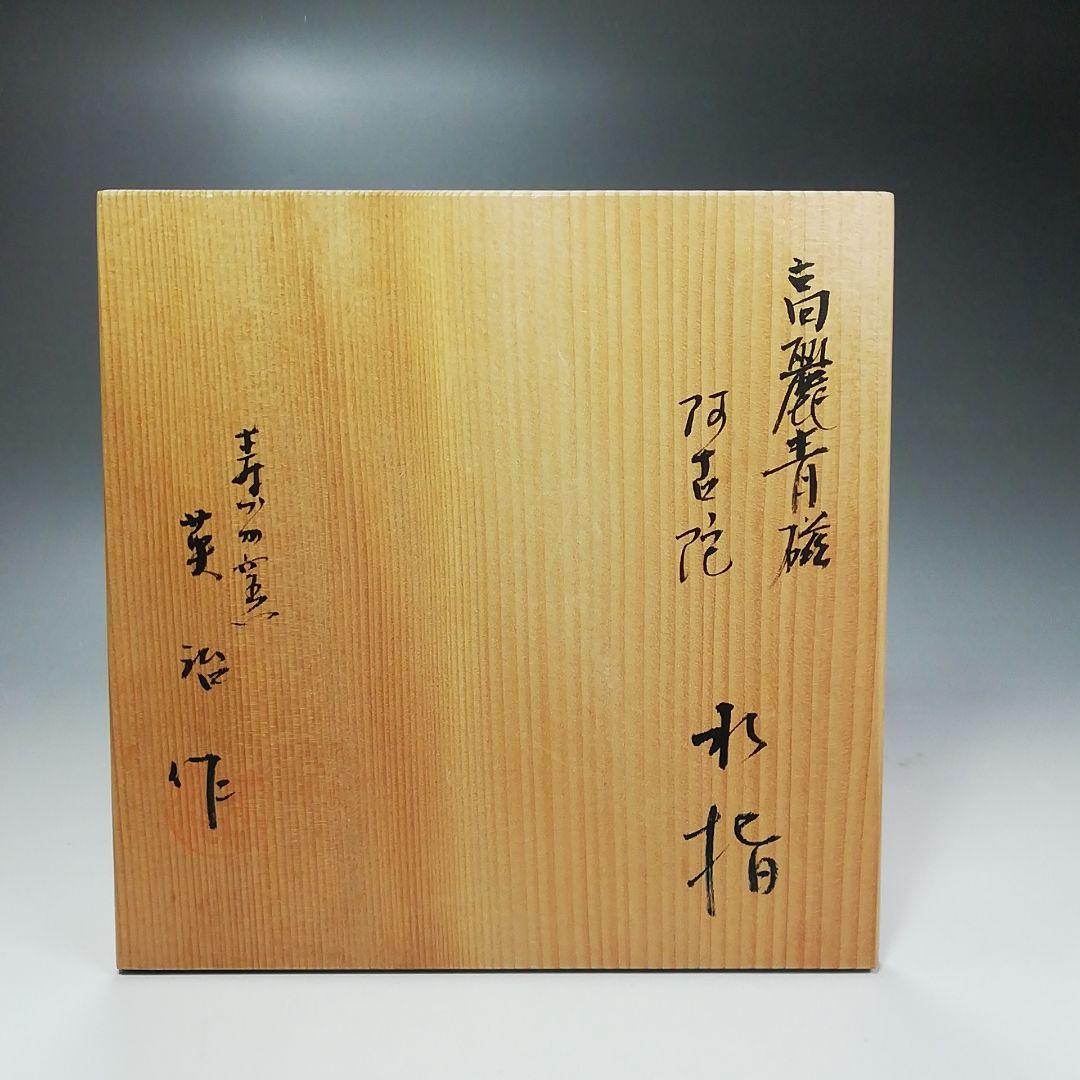 高麗青磁
阿古陀
水指
寿山窯
英治
作